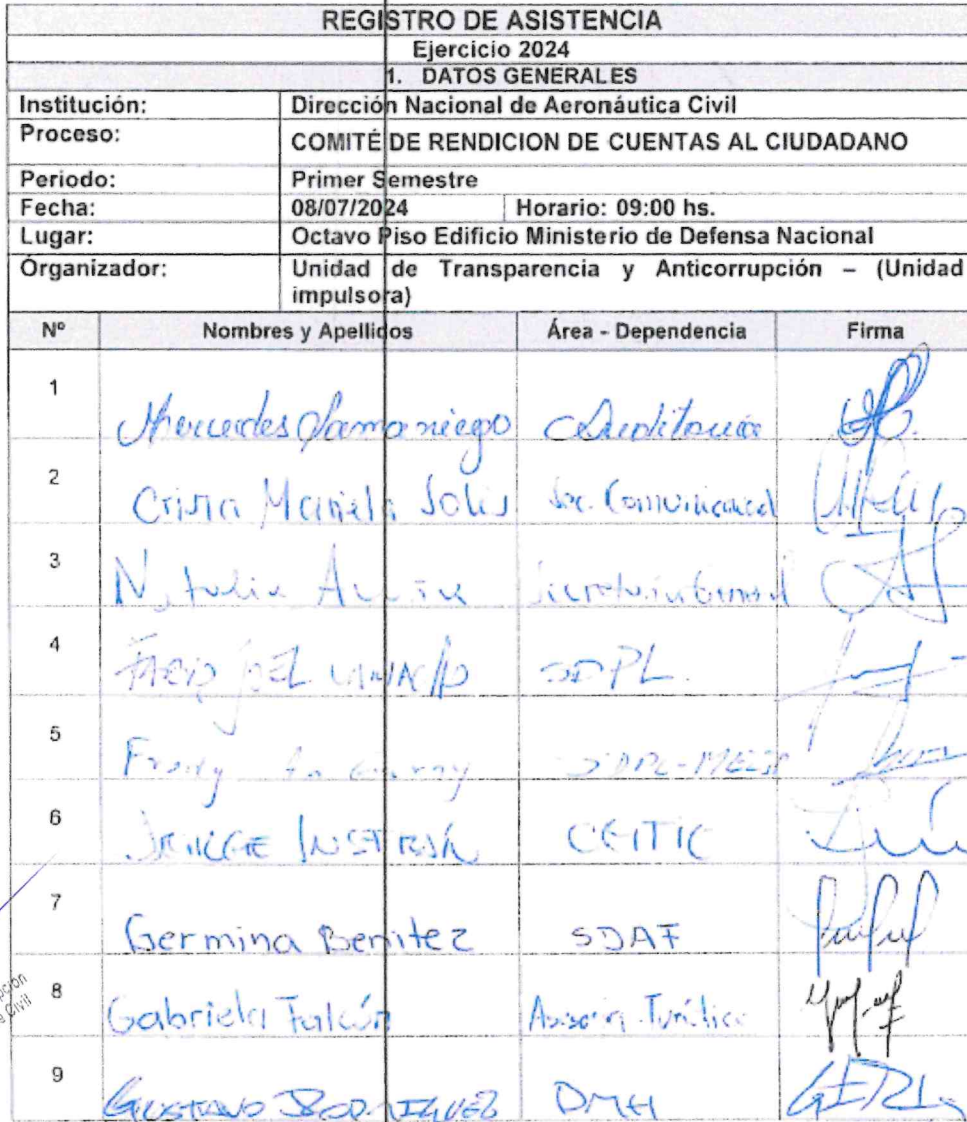 REGISTRO DE ASISTENCIA
Ejercicio 2024
1. DATOS GENERALES
Institución: Dirección Nacional de Aeronáutica Civil
Proceso: COMITÉ DE RENDICION DE CUENTAS AL CIUDADANO
Periodo: Primer Semestre
Fecha: 08/07/2024 Horario: 09:00 hs.
Lugar: Octavo Piso Edificio Ministerio de Defensa Nacional
Organizador: Unidad de Transparencia y Anticorrupción – (Unidad
impulsora)
Nº Nombres y Apellidos Área - Dependencia Firma
1 Mercedes Samaniego Auditoria
2 Mariela Solis
3 Natalia
4 JOEL SDPL.
5
6 JORGE
7 Germina Benitez SDAF
8 Gabriela Falcón
9 GUSTAVO RODRIGUEZ DMH